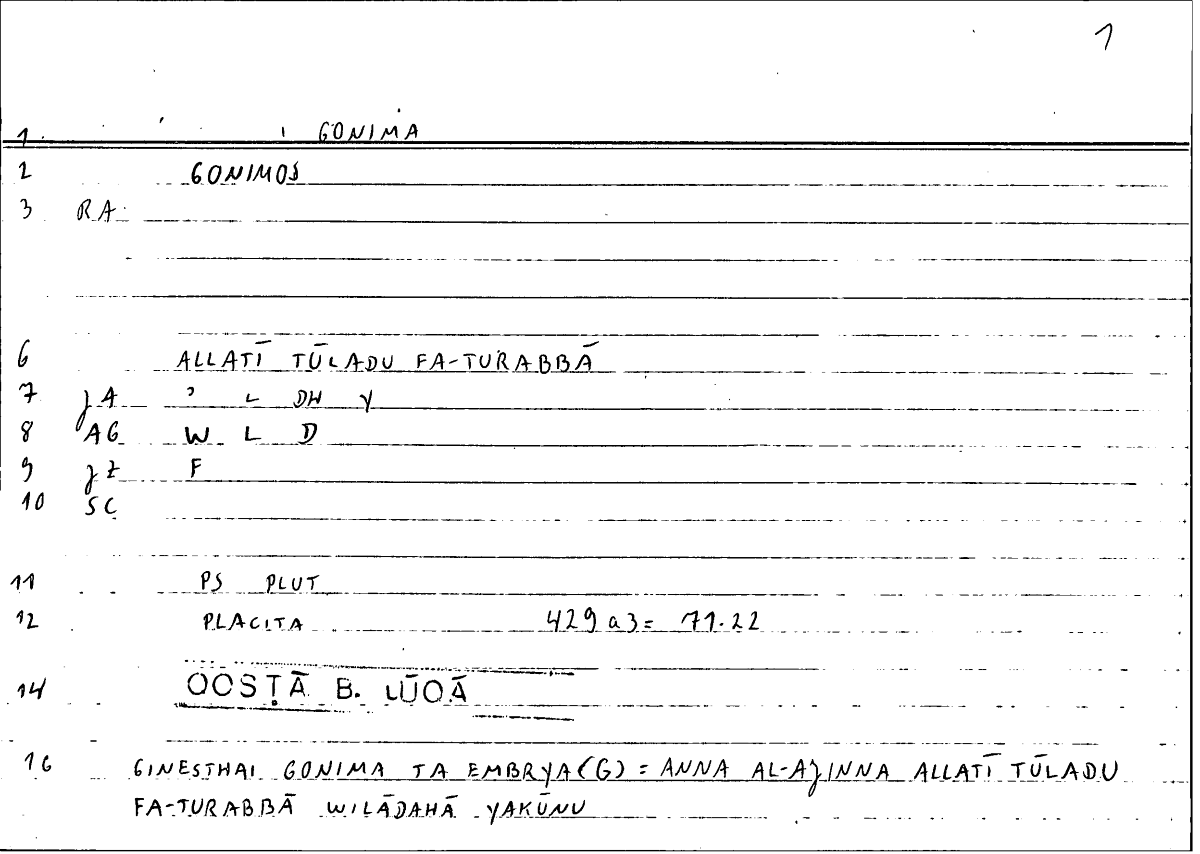 1
1 GONIMA
2 GONIMOS
3 RA
6 ALLATĪ TŪLADU FA-TURABBĀ
7 JA ʾ L DH Y
8 AG W L D
9 JZ F
10 SC
11 PS PLUT
12 PLACITA 429 a3 = 71.22
14 QOSṬĀ B. LŪQĀ
16 GINESTHAI GONIMA TA EMBRYA(G) = ANNA AL-AJINNA ALLATĪ TŪLADU
FA-TURABBĀ WILĀDAHĀ YAKŪNU